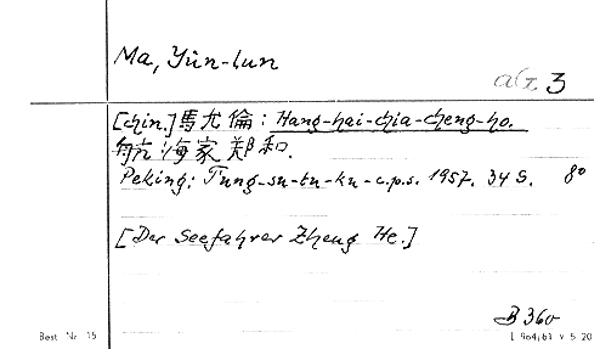 Ma, Yün-lun
3
[chin.] 馬允倫: Hang-hai-chia-cheng-ho.
航海家郑和.
Peking: T'ung-su-tu-wu-c.p.s. 1957. 34 S. 8°
[Der Seefahrer Zheng He.]
B 360
Best Nr 15